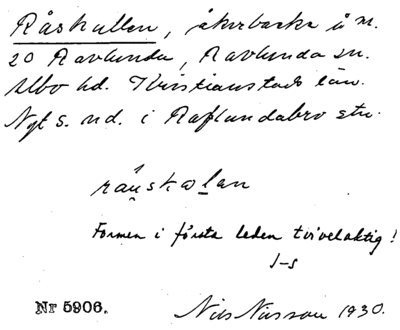 Råskallen, åkerbacke å n.
20 Ravlunda, Ravlunda sn.
Albo hd. Kristianstads län.
Ngt s. nd. i Raflundabro stn.
råuskalan
Formen i första leden tvivelaktig!
J-s
Nr 5906.
Nils Nilsson 1930.